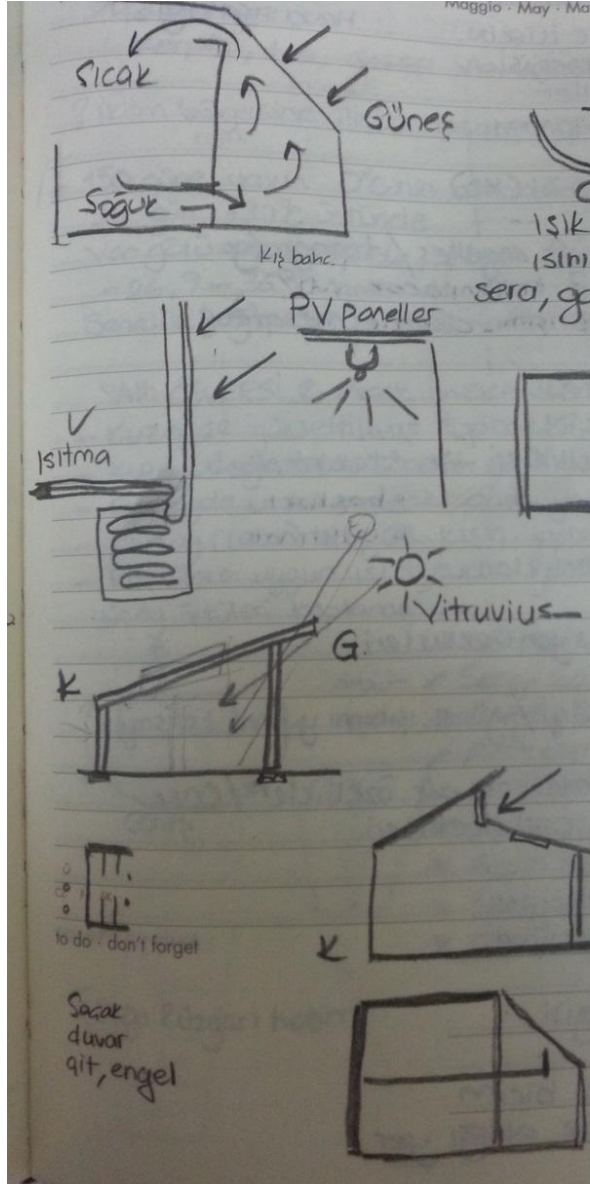 Maggio · May · Ma
Sıcak
Güneş
Soğuk
Kış bahc.
IŞIK
ısını
sera, ga
PV paneller
ISITMA
Vitruvius
G.
K
to do · don't forget
K
Saçak
duvar
çit, engel